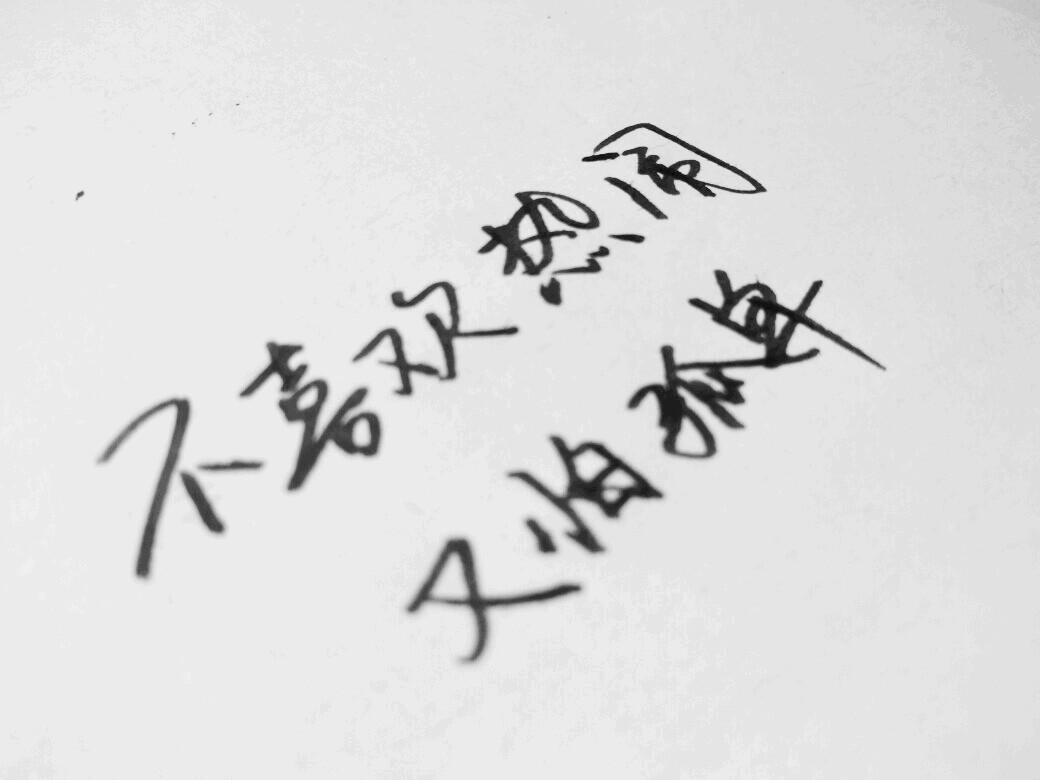 不喜欢热闹
不惧孤单